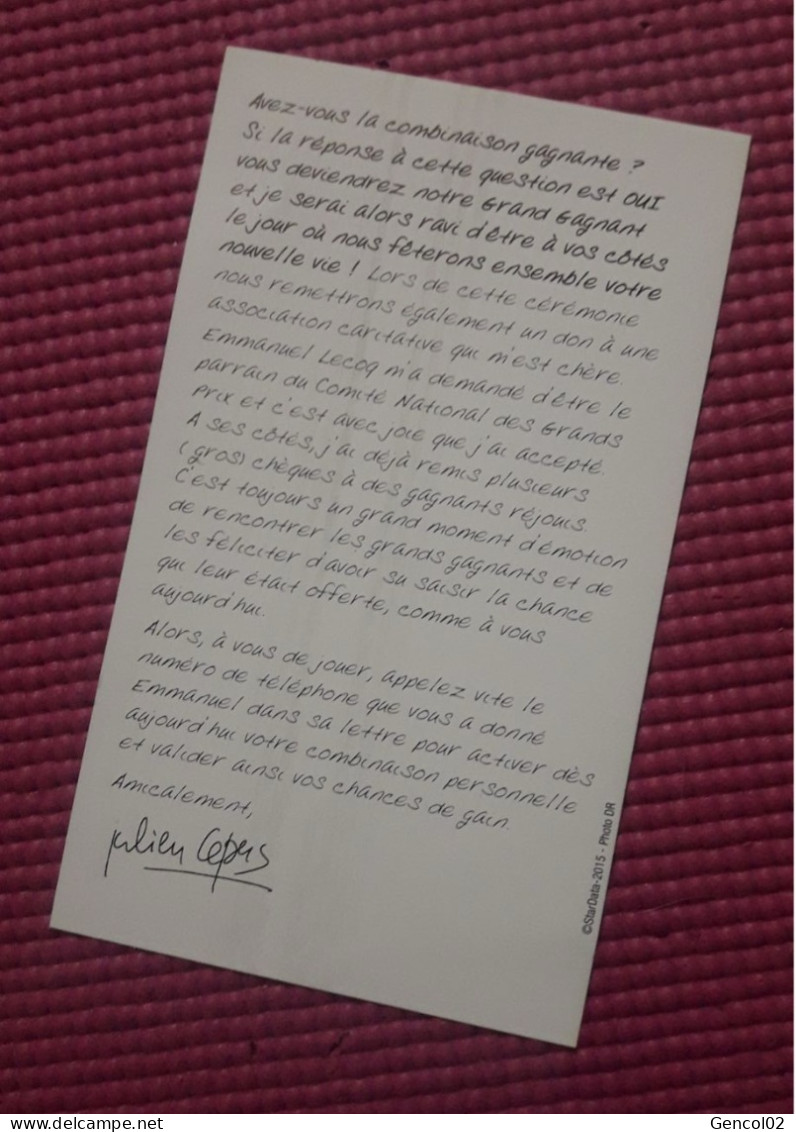 Avez-vous la combinaison gagnante ?
Si la réponse à cette question est OUI
vous deviendrez notre Grand Gagnant
et je serai alors ravi d'être à vos côtés
le jour où nous fêterons ensemble votre
nouvelle vie ! Lors de cette cérémonie
nous remettrons également un don à une
association caritative qui m'est chère.
Emmanuel Lecoq m'a demandé d'être le
parrain du Comité National des Grands
Prix et c'est avec joie que j'ai accepté.
A ses côtés, j'ai déjà remis plusieurs
(gros) chèques à des gagnants réjouis.
C'est toujours un grand moment d'émotion
de rencontrer les grands gagnants et de
les féliciter d'avoir su saisir la chance
qui leur était offerte, comme à vous
aujourd'hui.
Alors, à vous de jouer, appelez vite le
numéro de téléphone que vous a donné
Emmanuel dans sa lettre pour activer dès
aujourd'hui votre combinaison personnelle
et valider ainsi vos chances de gain.
Amicalement,
Julien Lepers
©StarData-2015 - Photo DR
delcampe.net
Gencol02